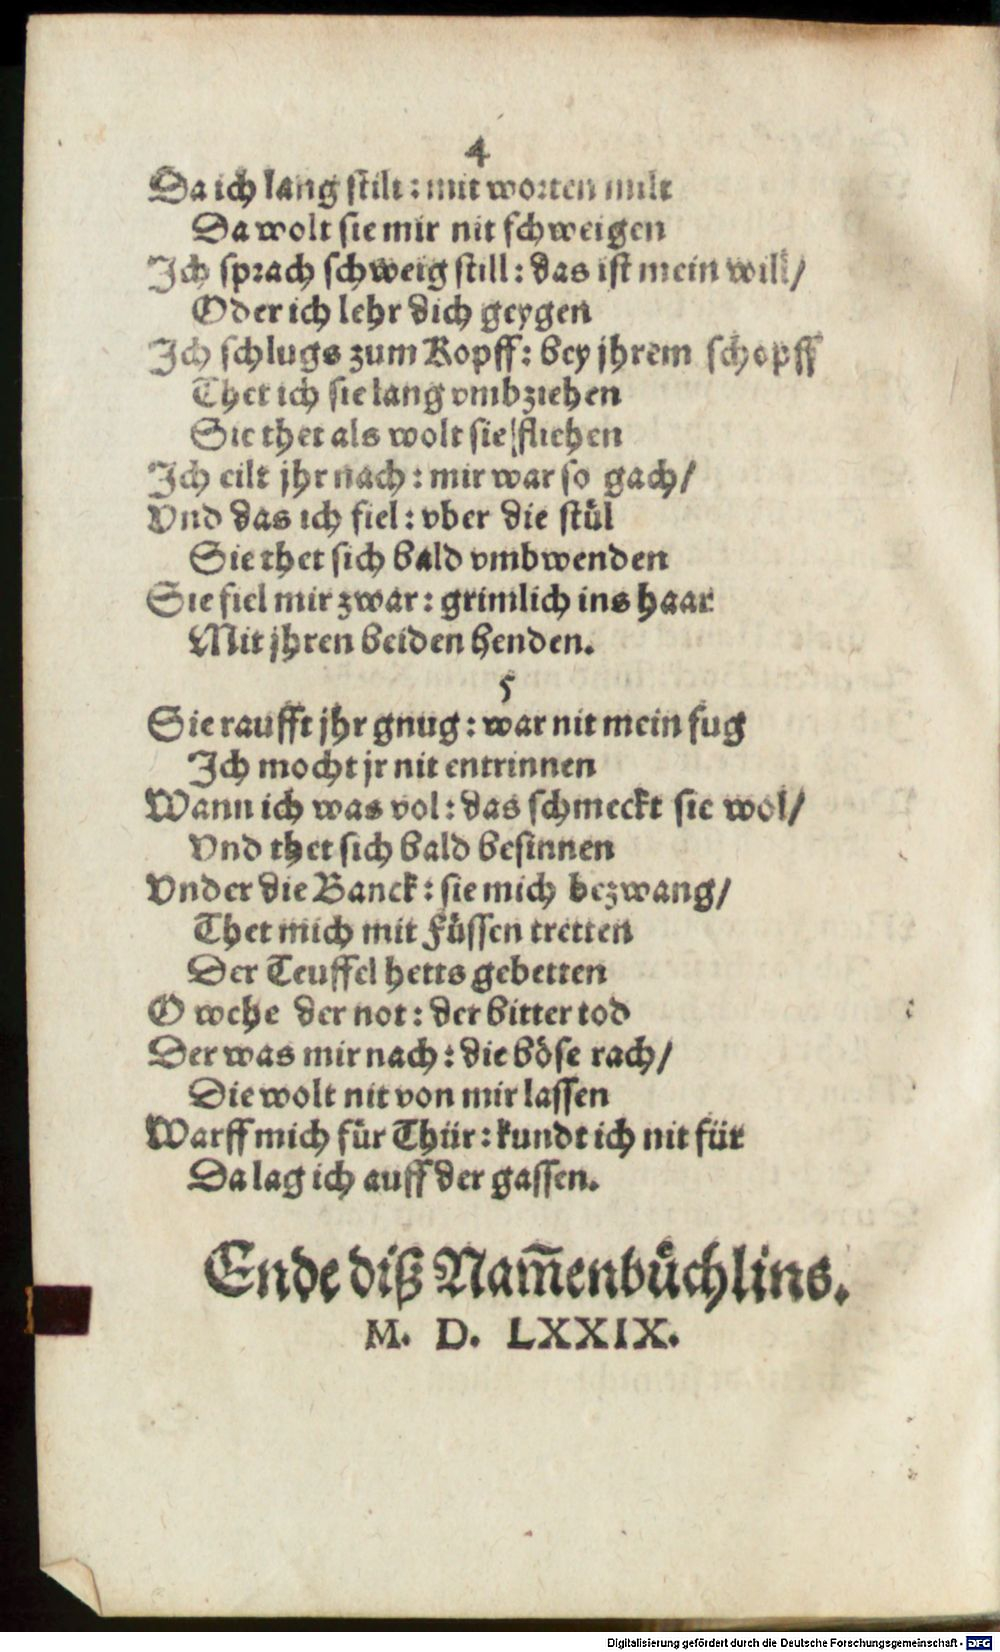 4
Da ich lang stilt : mit worten milt
Da wolt sie mir nit schweigen
Ich sprach schweig still : das ist mein will/
Oder ich lehr dich geygen
Ich schlugs zum Kopff : bey jhrem schopff
Thet ich sie lang vmbziehen
Sie thet als wolt sie fliehen
Ich eilt jhr nach : mir war so gach/
Vnd das ich fiel : vber die stül
Sie thet sich bald vmbwenden
Sie fiel mir zwar : grimlich ins haar
Mit jhren beiden henden.
5
Sie raufft jhr gnug : war nit mein fug
Ich mocht jr nit entrinnen
Wann ich was vol : das schmeckt sie wol/
Vnd thet sich bald besinnen
Vnder die Banck : sie mich bezwang/
Thet mich mit Füssen tretten
Der Teuffel hetts gebetten
O wehe der not : der bitter tod
Der was mir nach : die böse rach/
Die wolt nit von mir lassen
Warff mich für Thür : kundt ich nit für
Da lag ich auff der gassen.
Ende diß Nam̅enbüchlins.
M. D. LXXIX.
Digitalisierung gefördert durch die Deutsche Forschungsgemeinschaft - DFG